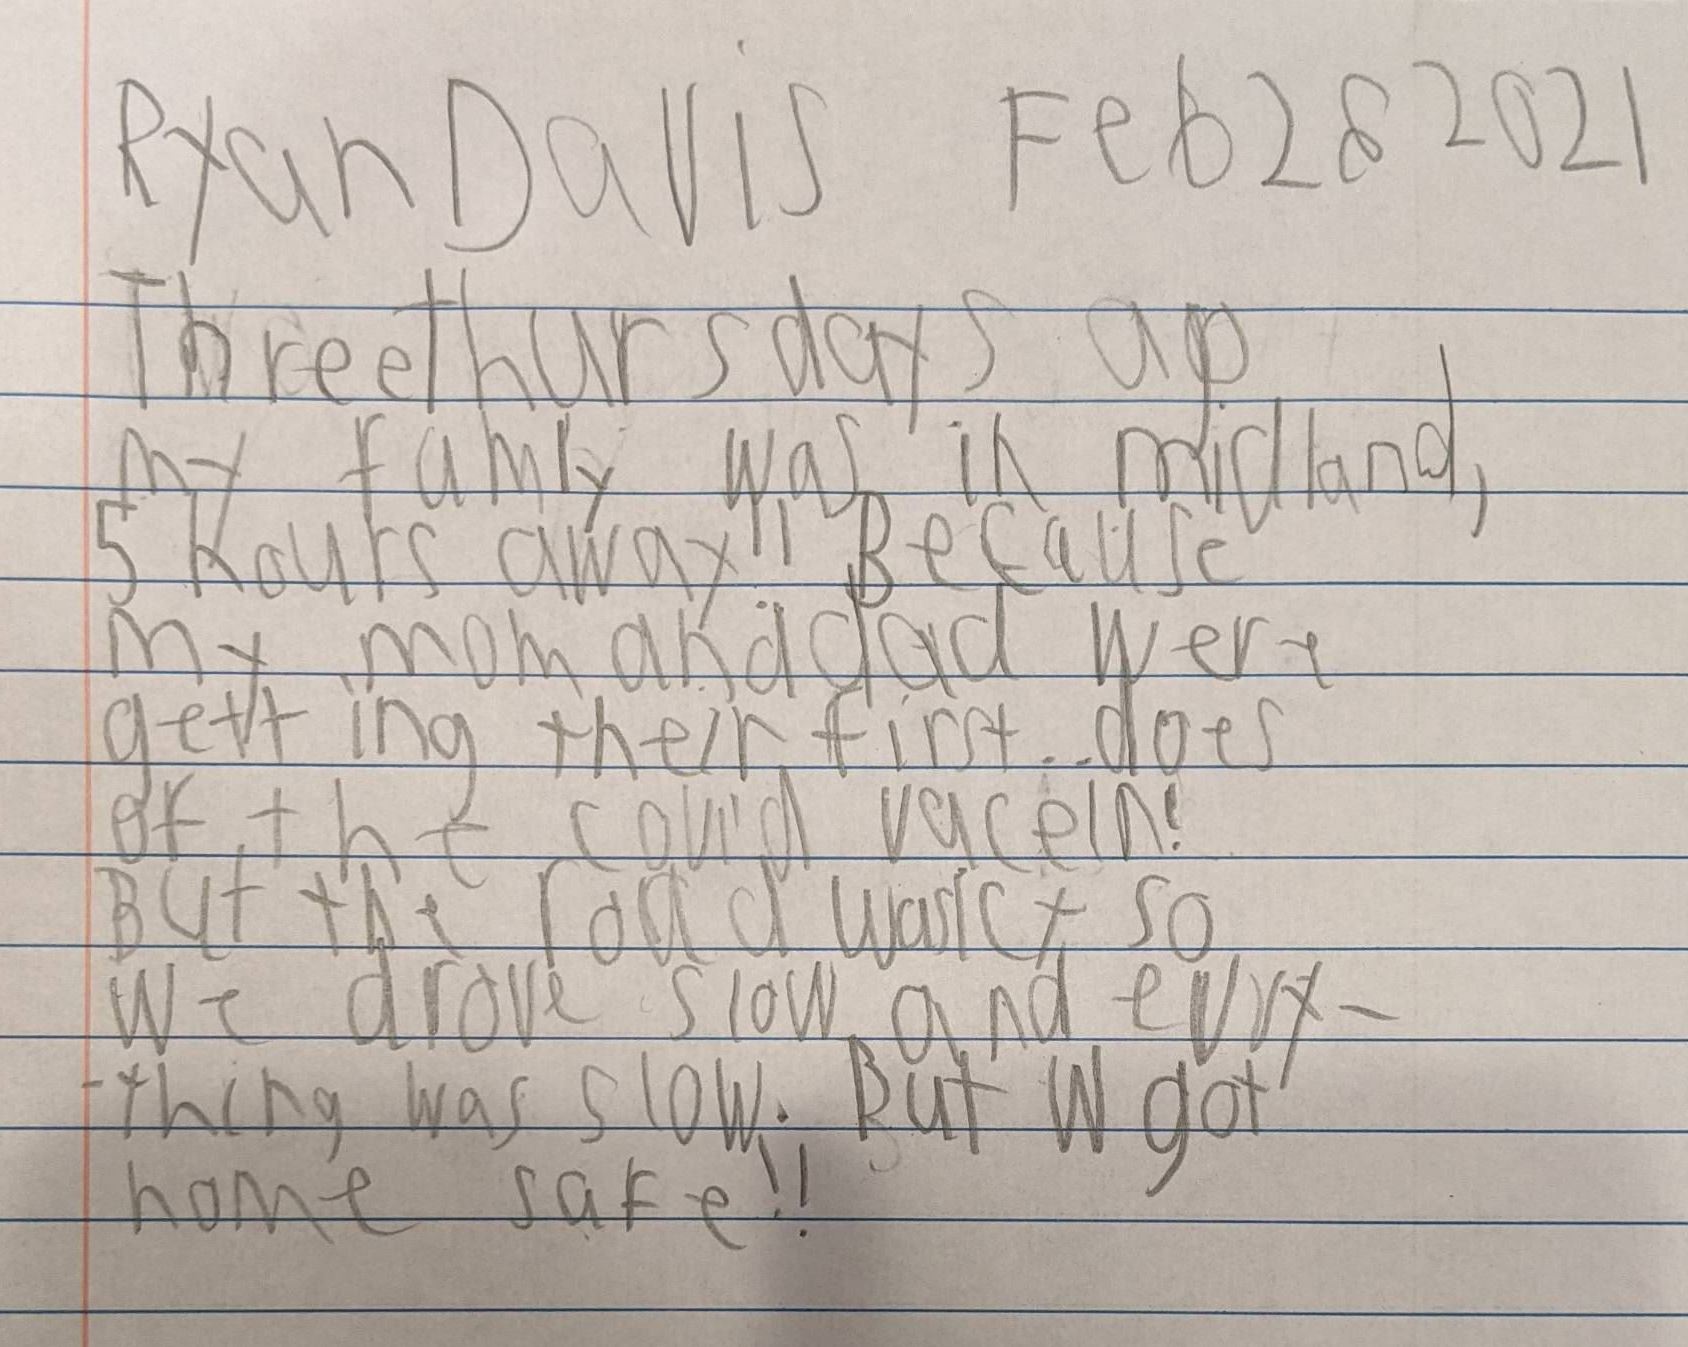 Ryan Davis Feb 28 2021
Three thursdays ap
my famly was in midland,
5 hours away!! Because
my mom and dad were
gettting their first does
of the covid vacein!
But the road was ict so
we drove slow and evry-
-thing was slow. But W got
home safe!!